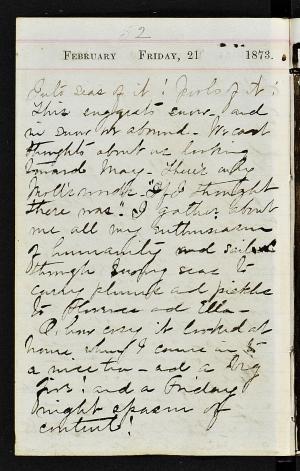 52
FEBRUARY FRIDAY, 21 1873.
Puts seas of it! Pools of it!
This suggests snow and
in snow we abound. We cast
thoughts about us looking
towards May. There's only
"If I thought
there was". I gather about
me all my enthusiasm
of humanity and sail
through snowy seas to
carry plums and pickles
to Florence and Ella -
O, how cosy it looked at
home when I came in to
a nice tea - and a big
fire! and a Friday
night spasm of
content!